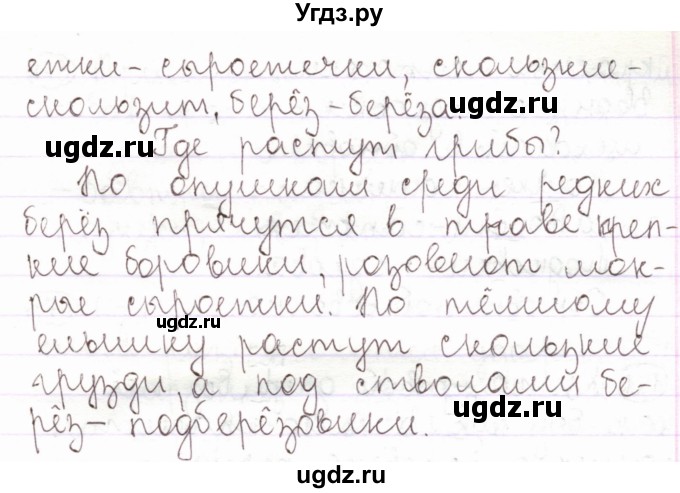 Угдз.ру
етки - сыроежечки, скользкие -
скользит, берёз - берёза.
ugdz.ru
ugdz.ru
Где растут грибы?
По опушкам среди редких
берёз прячутся в траве креп-
ugdz.ru
кие боровики, розовеют мок-
рые сыроежки. По тёмному
ugdz.ru
ельнику растут скользкие
ugdz.ru
грузди, а под стволами бе-
рёз - подберёзовики.
ugdz.ru
ugdz.ru